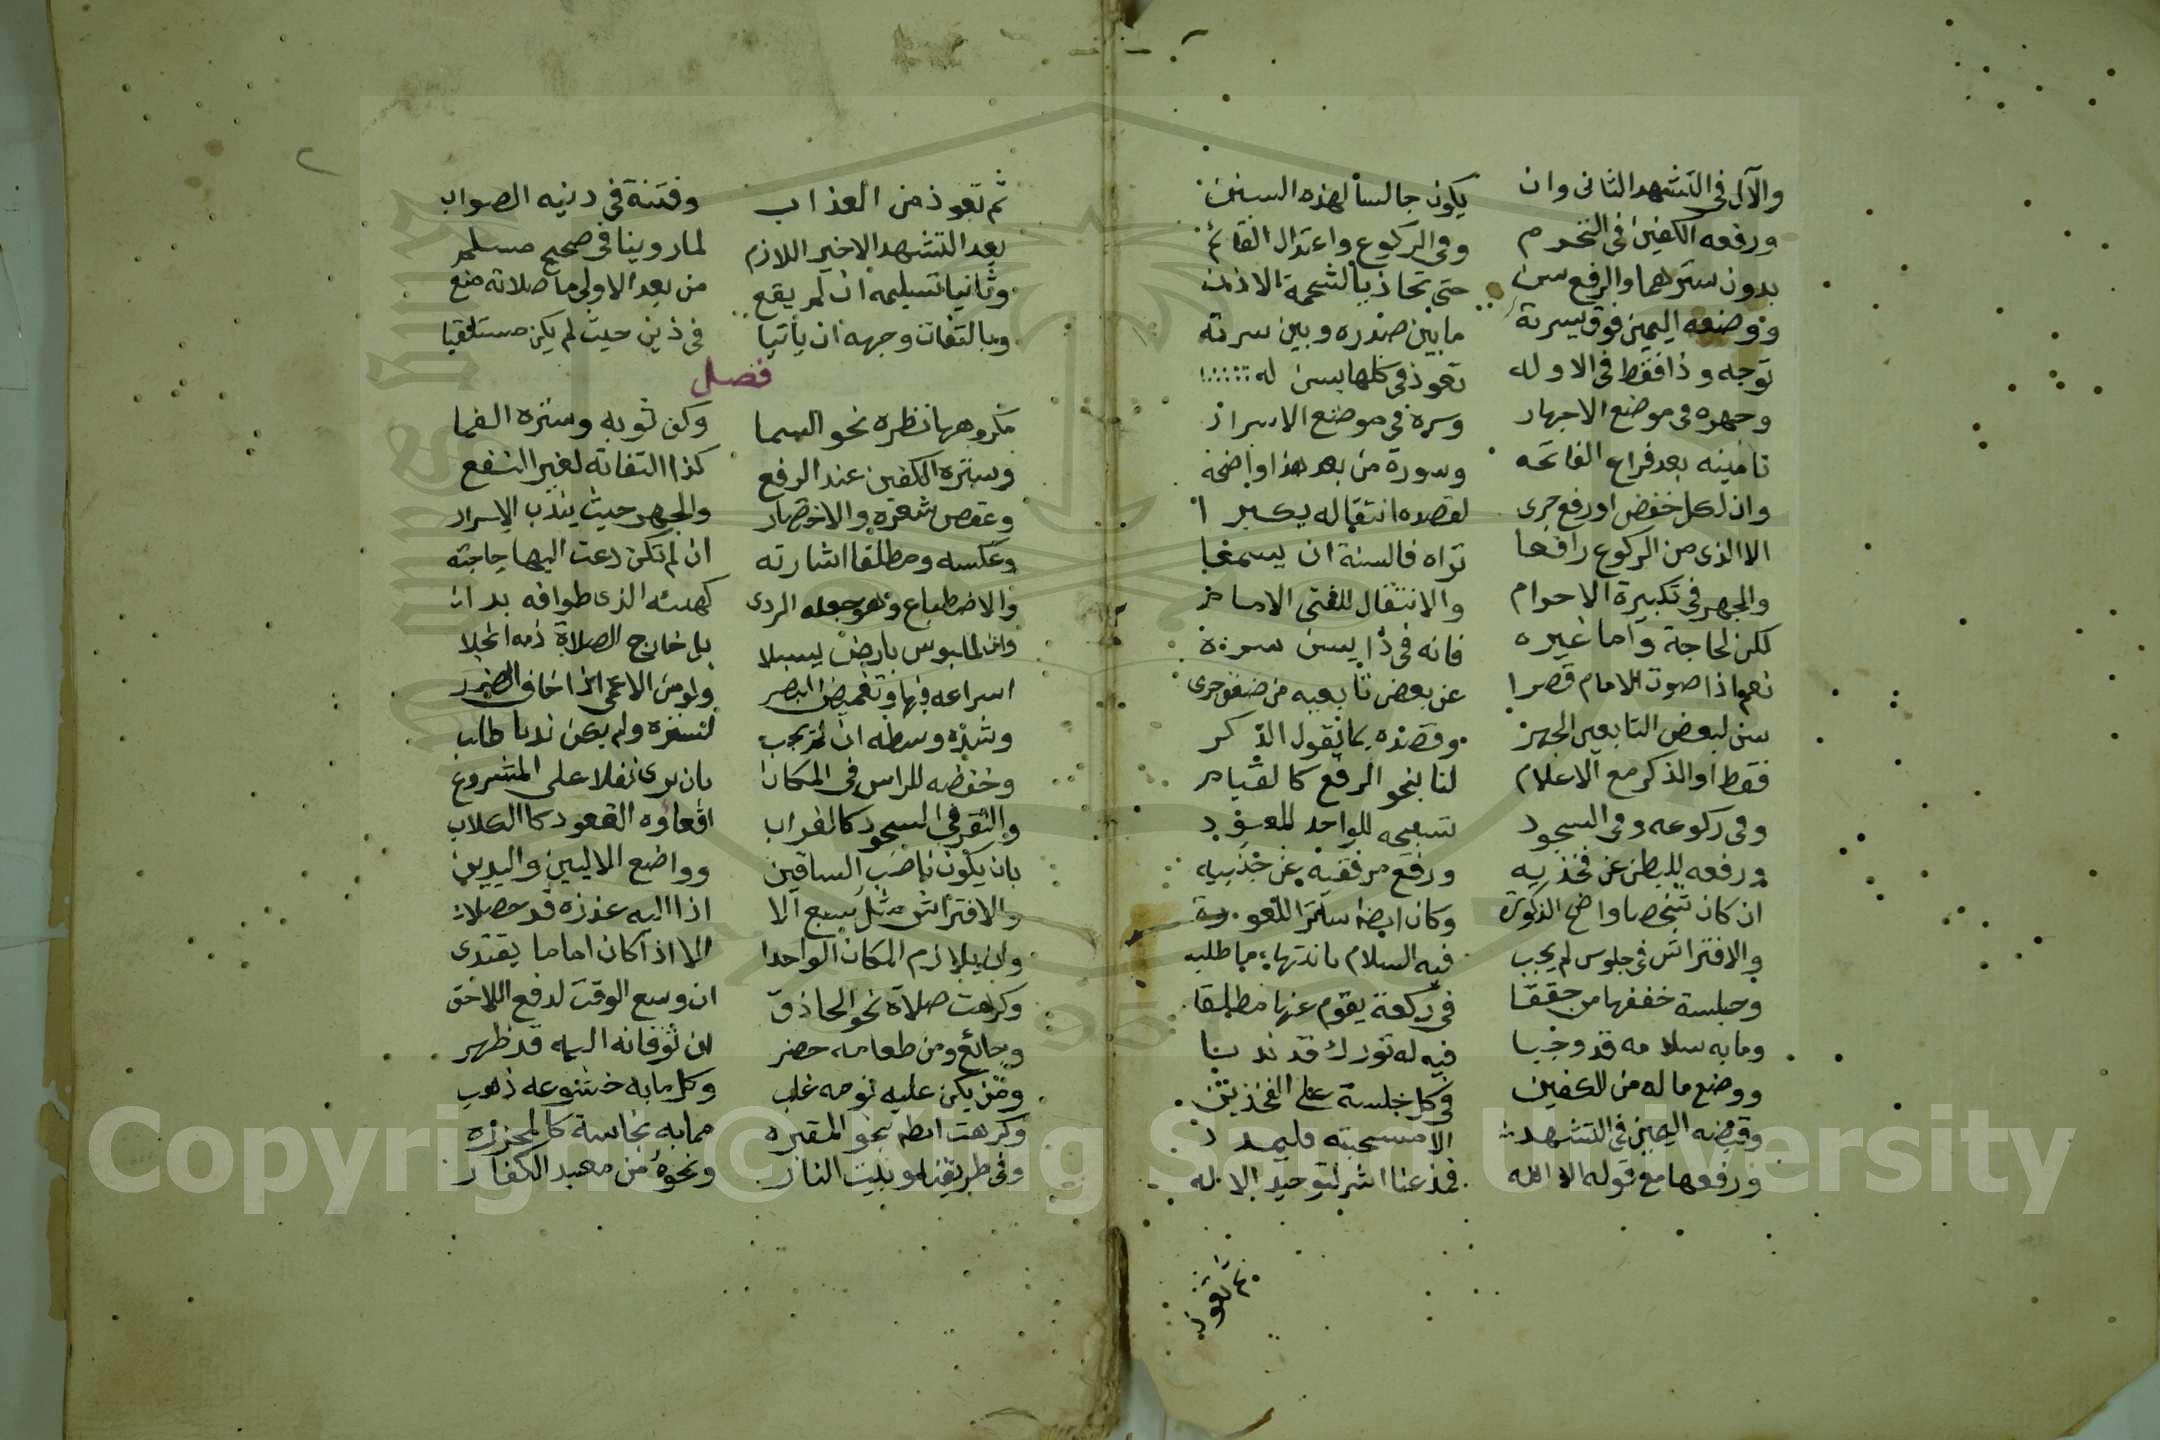 والآل في التشهد الثاني وان يكون جالسا لهذه السنن
ورفعه الكفين في التحرم وفي الركوع واعتدال القائم
بدون سترهما والرفع سن حتى تحاذيا لشحمة الاذن
ووضعه اليمين فوق يسرته ما بين صدره وبين سرته
توجه وذا فقط في الاوله تعوذ في كلها يسن له
وجهره في موضع الاجهار وسره في موضع الاسرار
تامينه بعد فراغ الفاتحه وسورة من بعد هذا واضحة
وان لكل خفض او رفع جرى لقصده انتقاله يكبرا
الا الذي من الركوع رافعا تراه فالسنة ان يسمعا
والجهر في تكبيرة الاحرام والانتقال للفتى الامام
لكن لحاجة واما غيره فانه في ذا يسن سره
نعم اذا صوت الامام قصرا عن بعض تابعيه من ضعف جرى
سن لبعض التابعين الجهر وقصده بما يقول الذكر
فقط او الذكر مع الاعلام لنا بنحو الرفع كالقيام
وفي ركوعه وفي السجود تسبيحه للواحد المعبود
ورفعه للبطن عن فخذيه ورفع مرفقيه عن جنبيه
ان كان شخصا واضح الذكورة وكان ايضا ساترا للعورة
والافتراش في جلوس لم يجب فيه السلام بانتهاء ما طلب
وجلسة خففها من حققا في ركعة يقوم عنها مطلقا
وما به سلامه قد وجبا فيه له تورك قد ندبا
ووضع ما له من الكفين في كل جلسة على الفخذين
وقبضه اليمين في التشهد الا مسبحته فليمدد
ورفعها مع قوله الا الله فخذ عنا اشر لتوحيد الاله
ثم تعوذ
٢
ثم تعوذ من العذاب وفتنة في دنيه الصواب
بعد التشهد الاخير اللازم لما روينا في صحيح مسلم
وثانيا تسليمه ان لم يقع من بعد الاولى ما صلاته منع
وبالتفات وجهه ان ياتيا في ذين حيث لم يكن مستلقيا
فصل
مكروهها نظره نحو السما وكف ثوبه وستره الفما
وستره الكفين عند الرفع كذا التفاته لغير النفع
وعقص شعره والاختصار والجهر حيث يندب الاسرار
وعكسه ومطلقا اشارته ان لم تكن دعت اليها حاجته
والاضطباع وهو جعله الردى كهيئه الذي طوافه بدا
وان لملبوس بارض يسبلا بل خارج الصلاة ذمه انجلا
اسراعه فيها وتغميض البصر ولو من الاعمى اذا خاف الضرر
وشده وسطه ان لم يجب لستره ولم يكن ندبا طلب
وخفضه للراس في المكان بان يرى نفلا على المشروع
والنقر في السجود كالغراب اقعاؤه القعود كالكلاب
بان يكون ناصب الساقين وواضع الاليين واليدين
والافتراش مثل سبع الا اذا اليه عذره قد حصلا
وان يلازم المكان الواحدا الا اذا كان اماما يقتدى
وكرهت صلاة نحو الحاذق ان وسع الوقت لدفع اللاحق
وجائع ومن طعامه حضر ان توقانه اليه قد ظهر
ومن يكن عليه نومه غلب وكل ما به خشوعه ذهب
وكرهت ايضا بنحو المقبره مما به نجاسة كالمجزره
وفي طريقنا وبيت النار ونحوه من معبد الكفار
Copyright © King Saud University